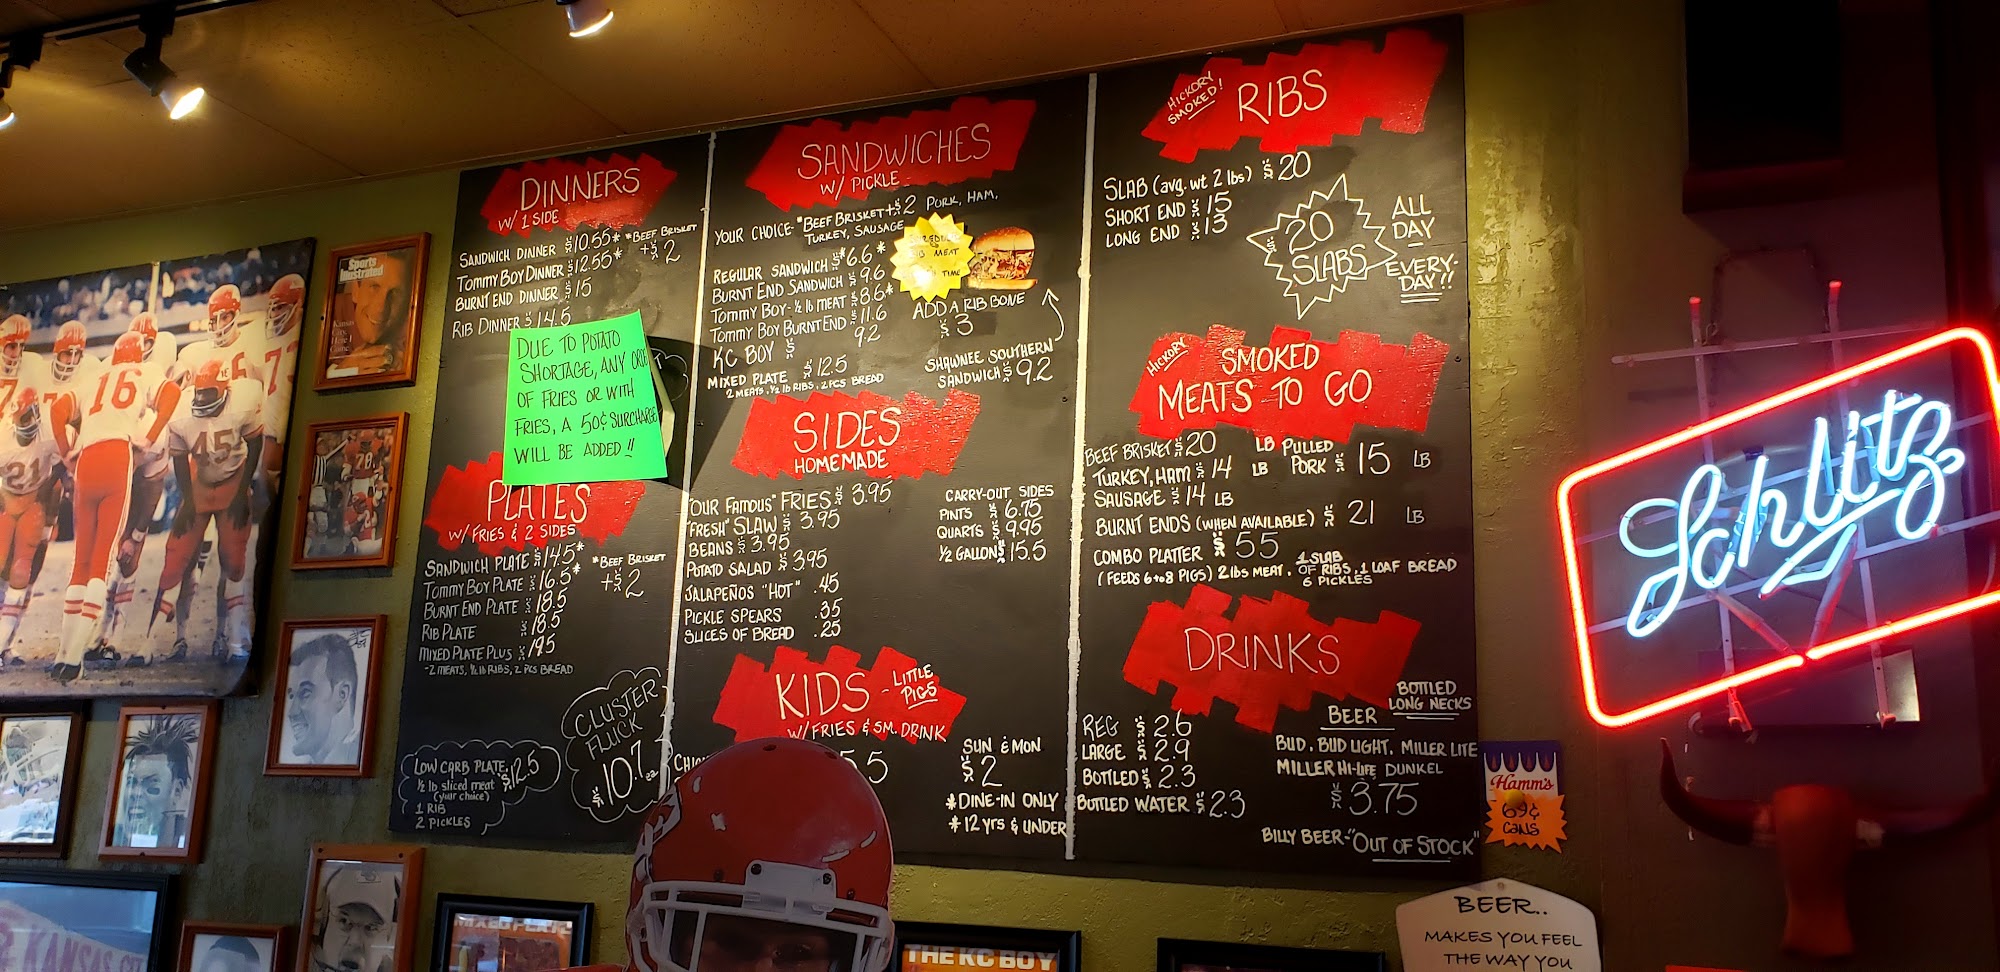 DINNERS
W/ 1 SIDE
SANDWICH DINNER $10.55* *BEEF BRISKET
+$2
TOMMY BOY DINNER $12.55*
BURNT END DINNER $15
RIB DINNER $14.5
DUE TO POTATO
SHORTAGE, ANY
OF FRIES OR WITH
FRIES, A 50¢ SURCHARGE
WILL BE ADDED!!
PLATES
W/ FRIES & 2 SIDES
SANDWICH PLATE $14.5* *BEEF BRISKET
+$2
TOMMY BOY PLATE $16.5*
BURNT END PLATE $18.5
RIB PLATE $18.5
MIXED PLATE PLUS $19.5
-2 MEATS, ½ lb RIBS, 2 PCS BREAD
LOW CARB PLATE $12.5
½ lb sliced meat
(your choice)
1 RIB
2 PICKLES
CLUSTER
FLUCK
$10.7
SANDWICHES
W/ PICKLE
YOUR CHOICE- *BEEF BRISKET +$2 PORK, HAM,
TURKEY, SAUSAGE
REGULAR SANDWICH $6.6*
BURNT END SANDWICH $9.6
TOMMY BOY- ½ lb MEAT $8.6*
TOMMY BOY BURNT END $11.6
KC BOY $9.2
MIXED PLATE $12.5
2 MEATS, ½ lb RIBS, 2 PCS BREAD
MEAT
TIME
ADD A RIB BONE
$3
SHAWNEE SOUTHERN
SANDWICH $9.2
SIDES
HOMEMADE
"OUR FAMOUS" FRIES $3.95
"FRESH" SLAW $3.95
BEANS $3.95
POTATO SALAD $3.95
JALAPEÑOS "HOT" .45
PICKLE SPEARS .35
SLICES OF BREAD .25
CARRY-OUT SIDES
PINTS $6.75
QUARTS $9.95
½ GALLON $15.5
KIDS - LITTLE
PIGS
W/ FRIES & SM. DRINK
SUN & MON
$2
*DINE-IN ONLY
*12 YRS & UNDER
HICKORY
SMOKED!
RIBS
SLAB (avg. wt 2 lbs) $20
SHORT END $15
LONG END $13
$20
SLABS
ALL
DAY
EVERY-
DAY!!
HICKORY
SMOKED
MEATS TO GO
BEEF BRISKET $20 LB PULLED
TURKEY, HAM $14 LB PORK $15 LB
SAUSAGE $14 LB
BURNT ENDS (WHEN AVAILABLE) $21 LB
COMBO PLATTER $55
(FEEDS 6 to 8 PIGS) 2 lbs MEAT, 1 SLAB
OF RIBS, 1 LOAF BREAD
6 PICKLES
DRINKS
REG $2.6
LARGE $2.9
BOTTLED $2.3
BOTTLED WATER $2.3
BEER
BOTTLED
LONG NECKS
BUD, BUD LIGHT, MILLER LITE
MILLER HI-LIFE DUNKEL
$3.75
BILLY BEER-"OUT OF STOCK"
Schlitz
Hamm's
69¢
CANS
BEER..
MAKES YOU FEEL
THE WAY YOU
Sports
Illustrated
Kansas
City,
Here I
Come
16
45
KANSAS
THE KC BOY